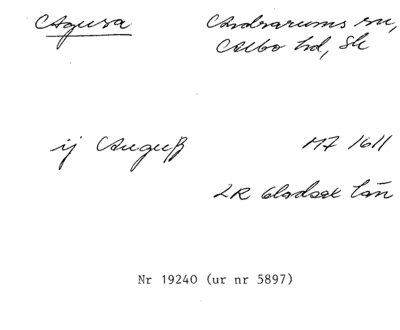 Agusa
Andrarums sn,
Albo hd, Sk
ij Auguß
M7 1611
LR Gladsax län
Nr 19240 (ur nr 5897)